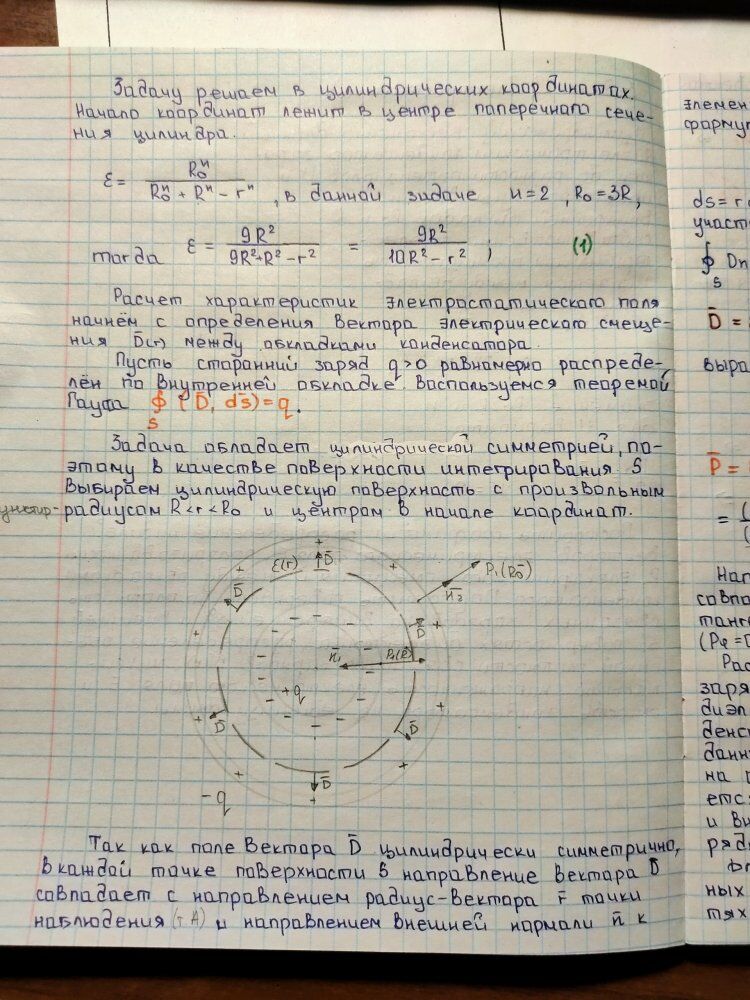 Задачу решаем в цилиндрических координатах.
Начало координат лежит в центре поперечного сече-
ния цилиндра.
ε = R₀ⁿ / (R₀ⁿ + Rⁿ - rⁿ), в данной задаче n=2, R₀=3R,
тогда ε = 9R² / (9R²+R²-r²) = 9R² / (10R²-r²); (1)
Расчет характеристик электростатического поля
начнём с определения вектора электрического смеще-
ния D̄(r) между обкладками конденсатора.
Пусть сторонний заряд q>0 равномерно распреде-
лён по внутренней обкладке. Воспользуемся теоремой
Гаусса ∮ (D̄, ds̄) = q.
S
Задача обладает цилиндрической симметрией, по-
этому в качестве поверхности интегрирования S
выбираем цилиндрическую поверхность с произвольным
радиусом R<r<R₀ и центром в начале координат.
ε(r) D̄
D̄ P₁(R₀)
n̄₂
D̄
n̄₁
+q
D̄ D̄
D̄
-q
Так как поле вектора D̄ цилиндрически симметрично,
в каждой точке поверхности S направление вектора D̄
совпадает с направлением радиус-вектора r̄ точки
наблюдения (т А) и направлением внешней нормали n̄ к
элемен
форму
ds = r
участ
∮ Dn
S
D̄ =
выра
P̄ =
= (
Нап
совпа
танг
Рас
заря
диэл
денс
данн
на
етс
и вн
ряд
ных
тях